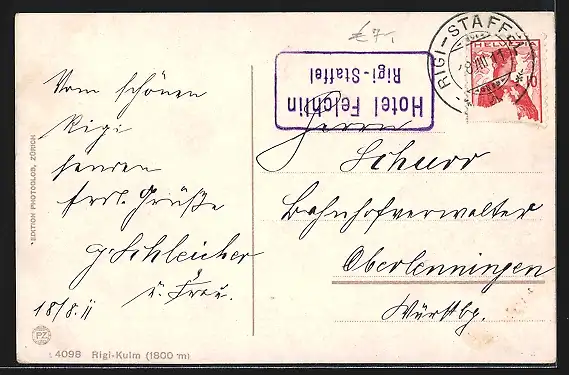 € 7,-
RIGI-STAFFEL
18.VIII.11
HELVETIA
10
Hotel Felchlin
Rigi-Staffel
Vom schönen
Rigi
senden
frdl. Grüße
G. Schleicher
u. Frau.
18/8. 11
Herrn
Schurr
Bahnhofverwalter
Oberlenningen
Württbg.
*EDITION PHOTOGLOB, ZÜRICH
PZ
4098 Rigi-Kulm (1800 m)